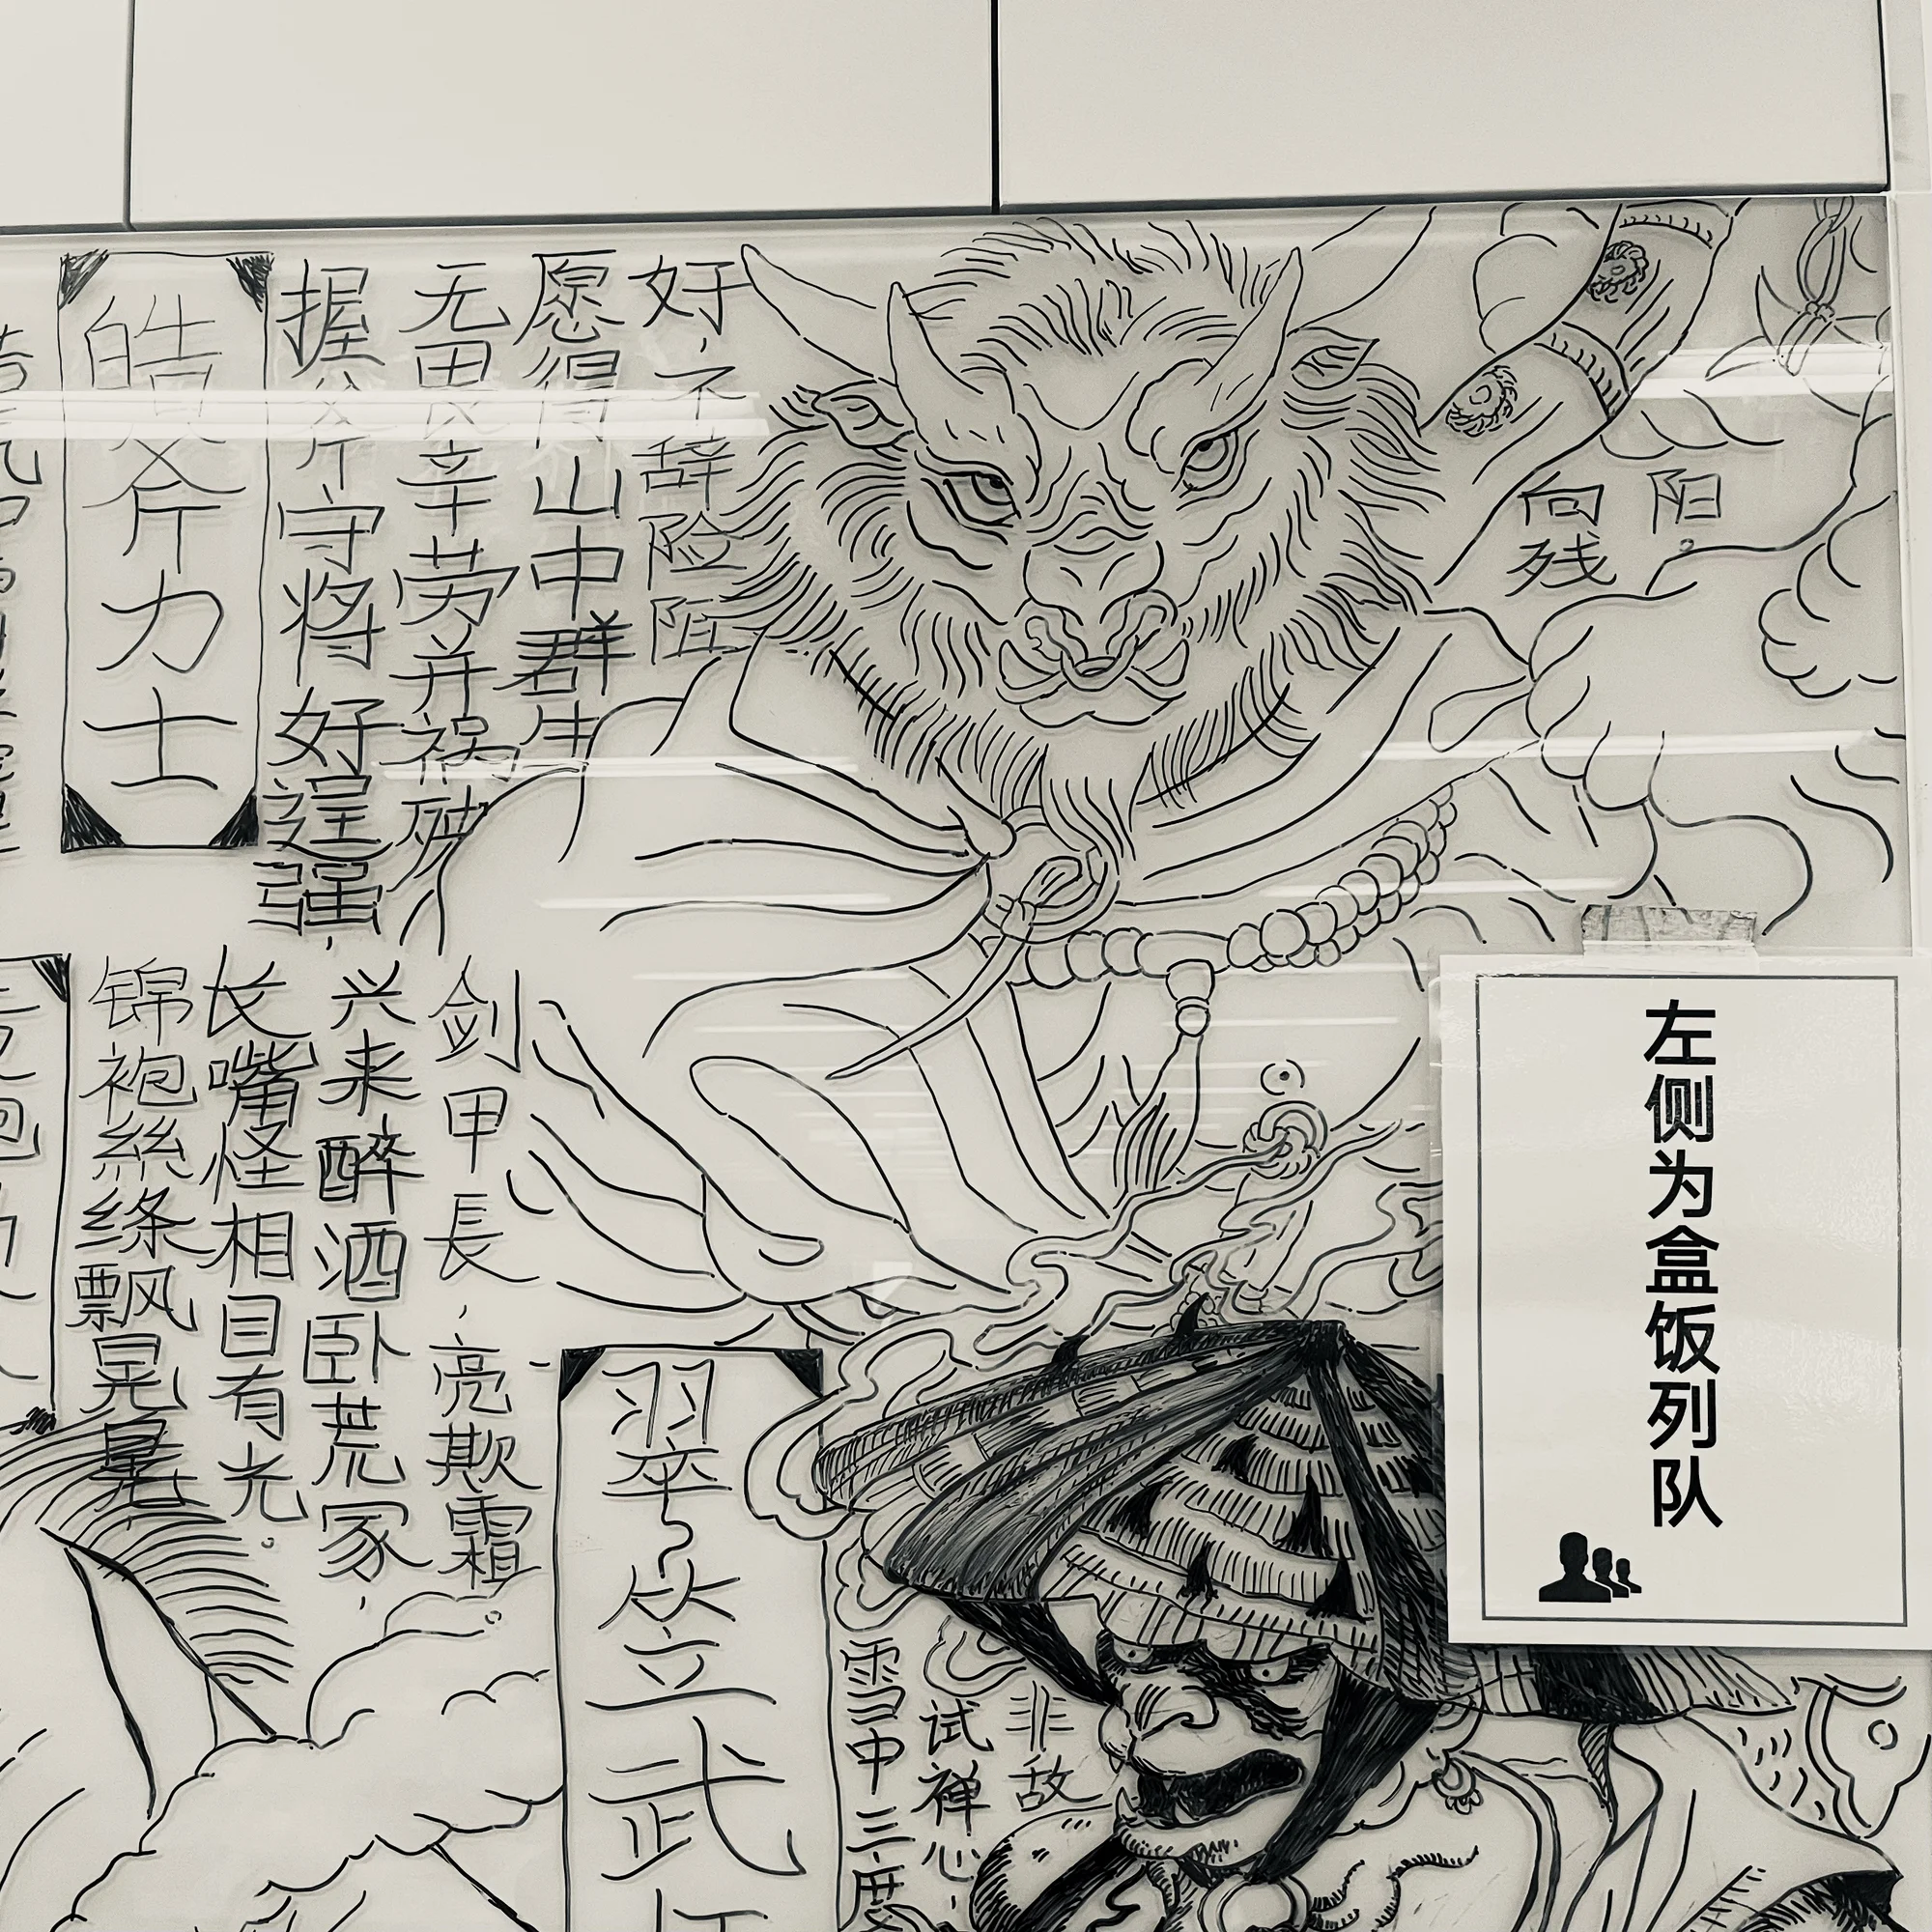 皓斧力士
握斧守将好逞强，
无畏辛劳并祸殃
愿得山中群生
好，不辞险阻
向残
阳。
锦袍絲绦飘晃
长嘴怪相目有光。
兴来醉酒卧荒冢，
剑甲長，亮欺霜。
翠笠武
雪中三度
试禅心，
非敌
左侧为盒饭列队